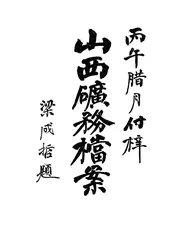 丙午腊月付梓
山西礦務檔案
梁成哲題